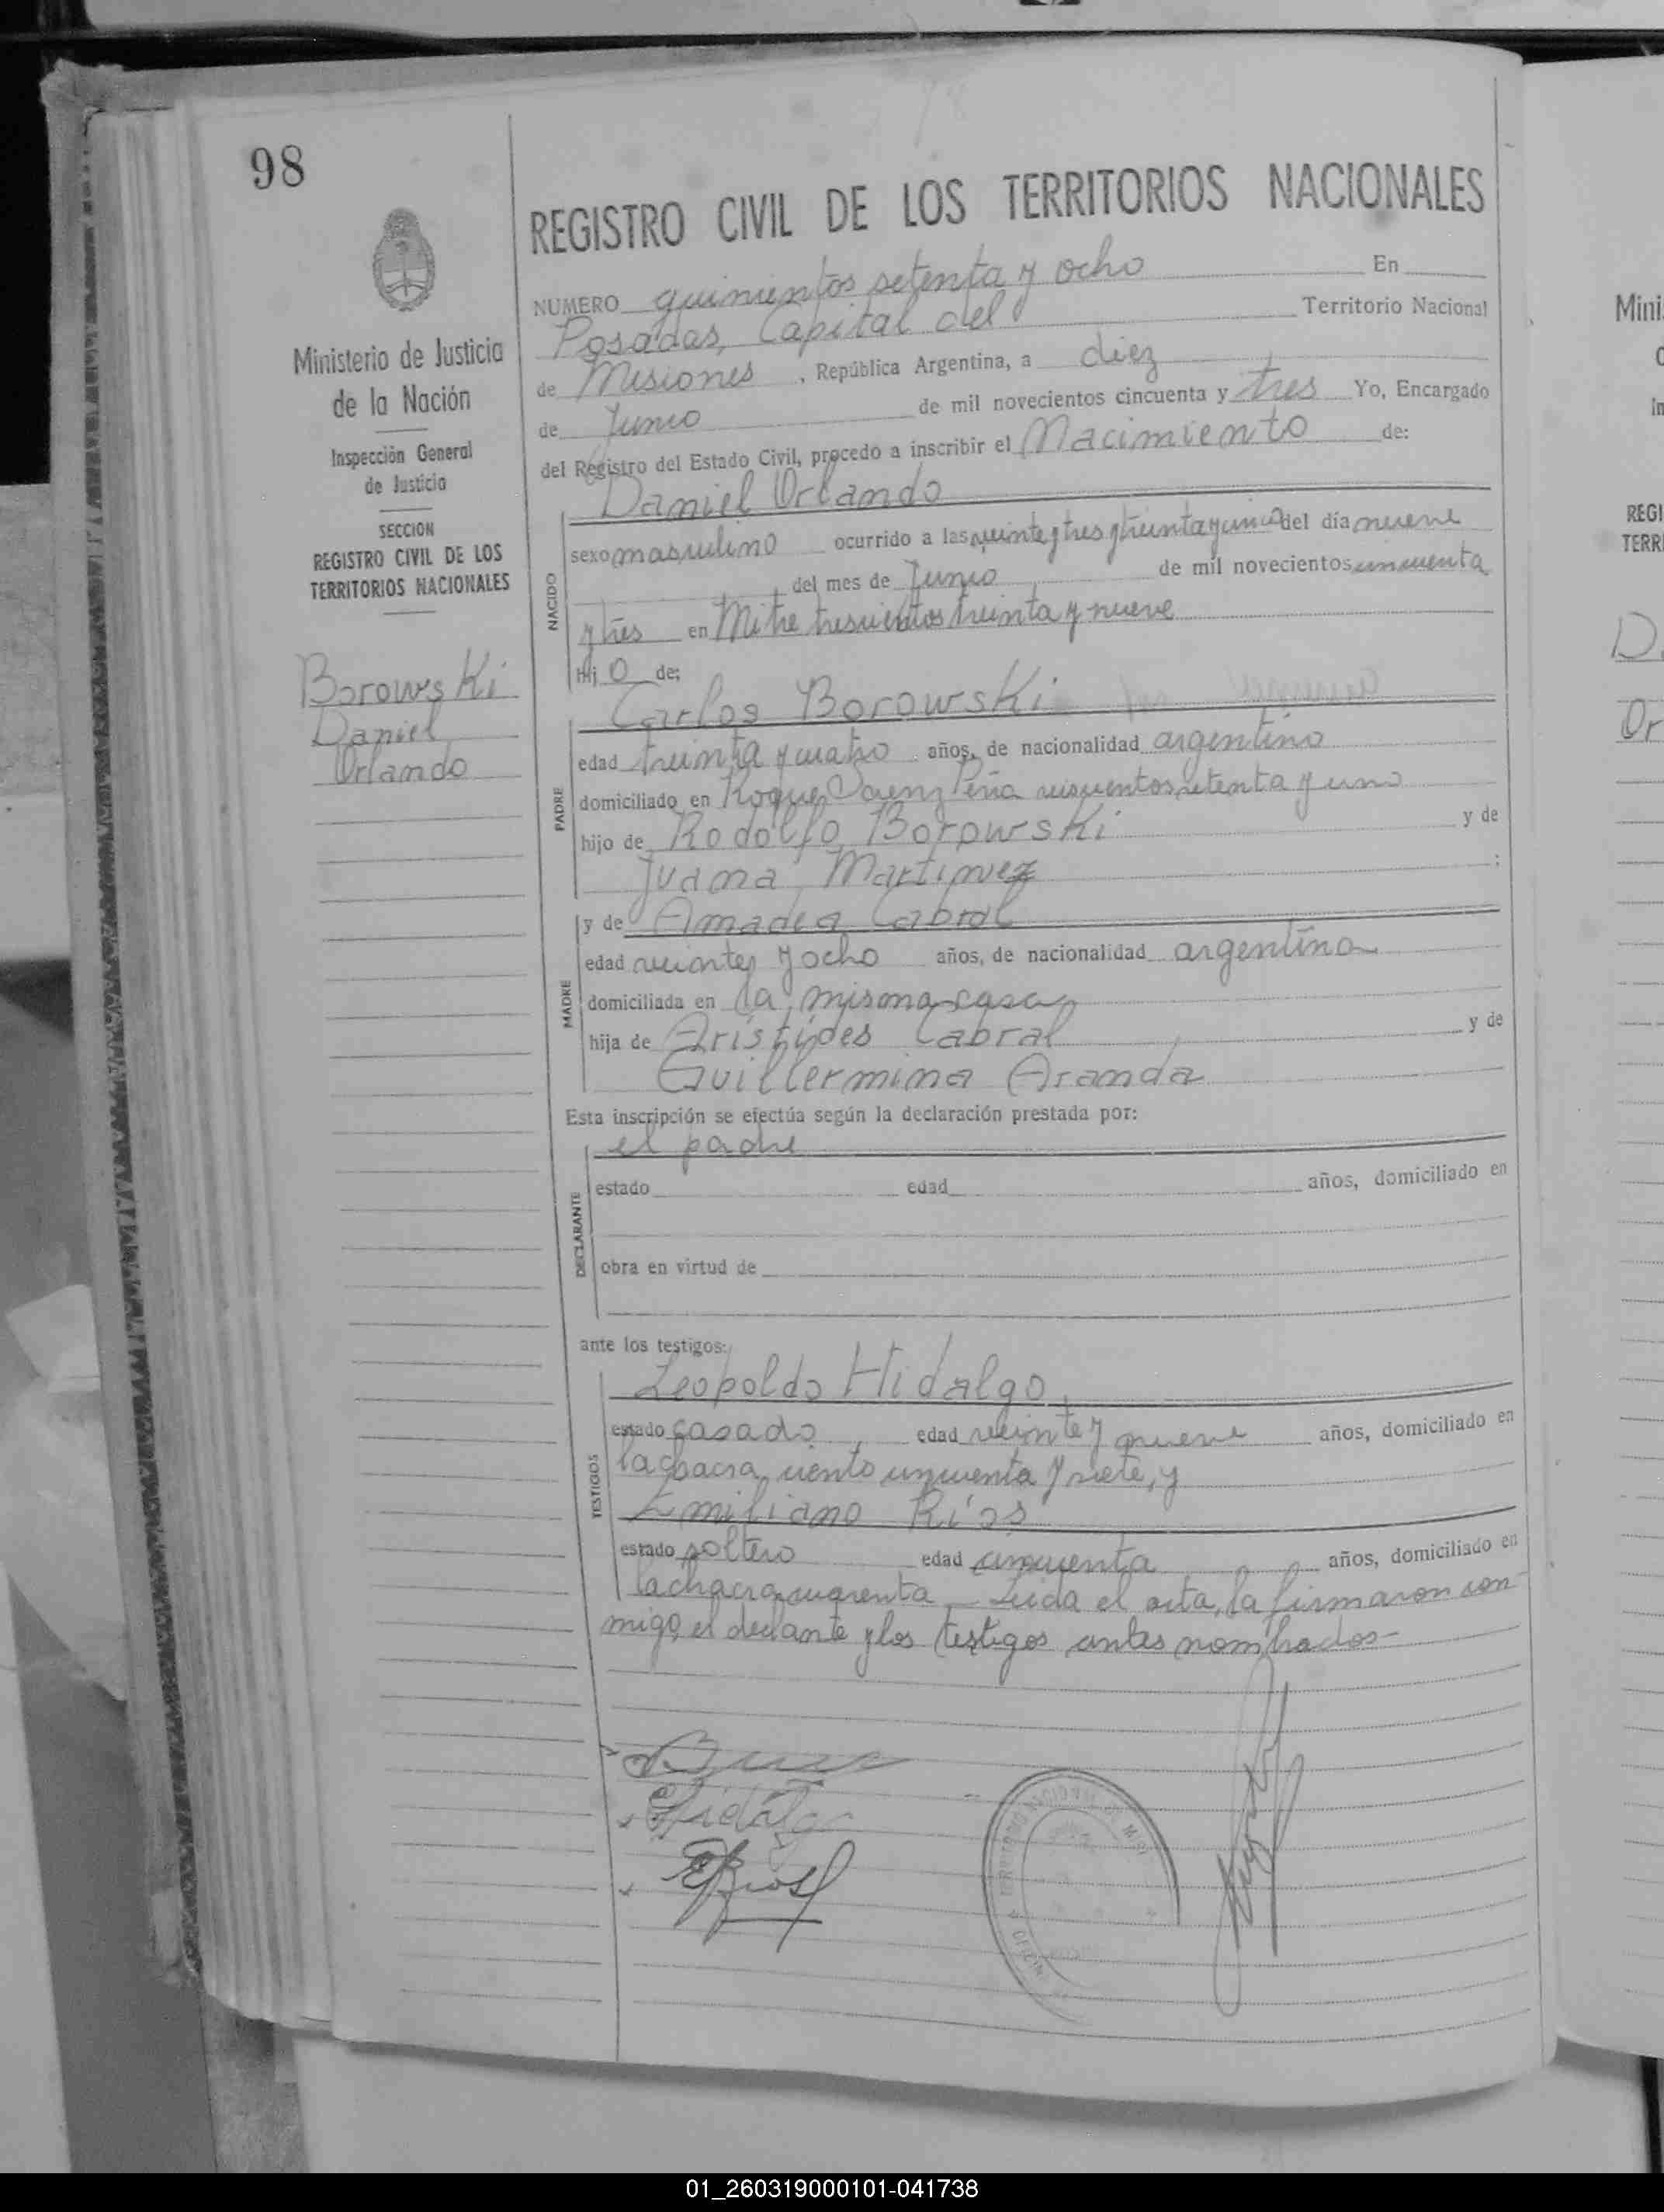 98
REGISTRO CIVIL DE LOS TERRITORIOS NACIONALES
NUMERO quinientos setenta y ocho En
Posadas, Capital del Territorio Nacional
de Misiones, República Argentina, a diez
de Junio de mil novecientos cincuenta y tres Yo, Encargado
del Registro del Estado Civil, procedo a inscribir el Nacimiento de:
Ministerio de Justicia
de la Nación
Inspección General
de Justicia
SECCION
REGISTRO CIVIL DE LOS
TERRITORIOS NACIONALES
Borowski
Daniel
Orlando
Daniel Orlando
NACIDO
sexo masculino ocurrido a las del día nueve
del mes de Junio de mil novecientos cincuenta
y tres en Mitre trescientos treinta y nueve
hijo de;
Carlos Borowski
PADRE
edad treinta y cuatro años, de nacionalidad argentino
domiciliado en Roque Saenz Peña seiscientos setenta y uno
hijo de Rodolfo Borowski y de
Juana Martinez ;
y de Amadea Cabral
MADRE
edad veintey ocho años, de nacionalidad argentina
domiciliada en la misma casa
hija de Arístides Cabral y de
Guillermina Aranda
Esta inscripción se efectúa según la declaración prestada por:
el padre
DECLARANTE
estado edad años, domiciliado en
obra en virtud de
ante los testigos:
Leopoldo Hidalgo,
TESTIGOS
estado casado edad veinte y nueve años, domiciliado en
la chacra ciento cincuenta y siete, y
Emiliano Ríos
estado soltero edad cincuenta años, domiciliado en
la chacra cuarenta — Leida el acta, la firmaron con-
migo, el declante y los testigos antes nombrados-
Hidalgo
ERios
TERRITORIO NACIONAL DE MISI
OFICIN
Mini
REGI
TERRI
D.
Or
01_260319000101-041738